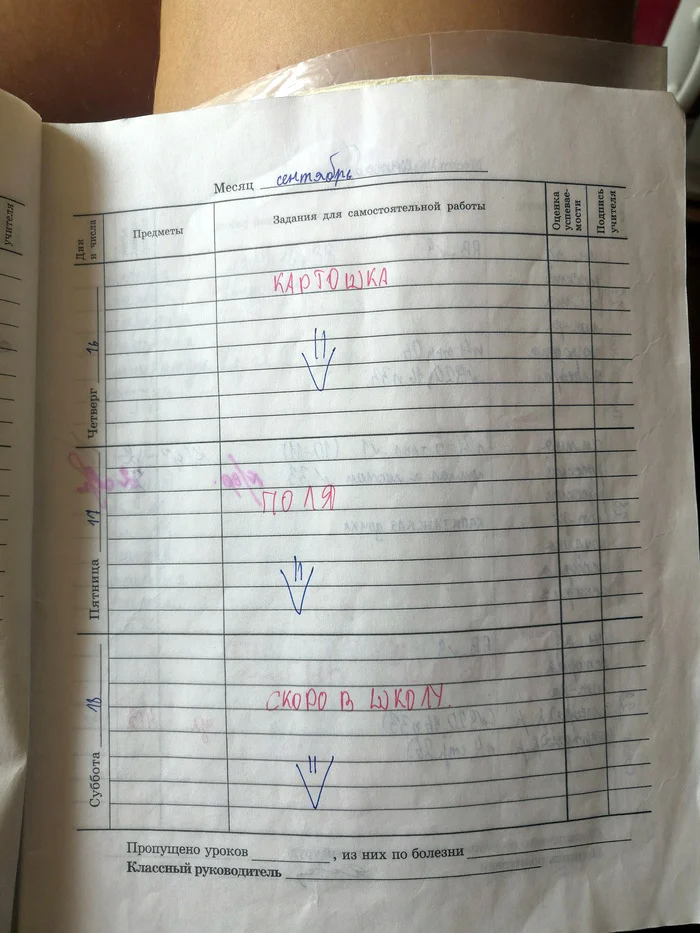 Месяц сентябрь
Дни и числа
Предметы
Задания для самостоятельной работы
Оценка успевае-мости
Подпись учителя
Четверг 16
КАРТОШКА
Пятница 17
ПОЛЯ
Суббота 18
СКОРО В ШКОЛУ.
Пропущено уроков , из них по болезни
Классный руководитель
учителя